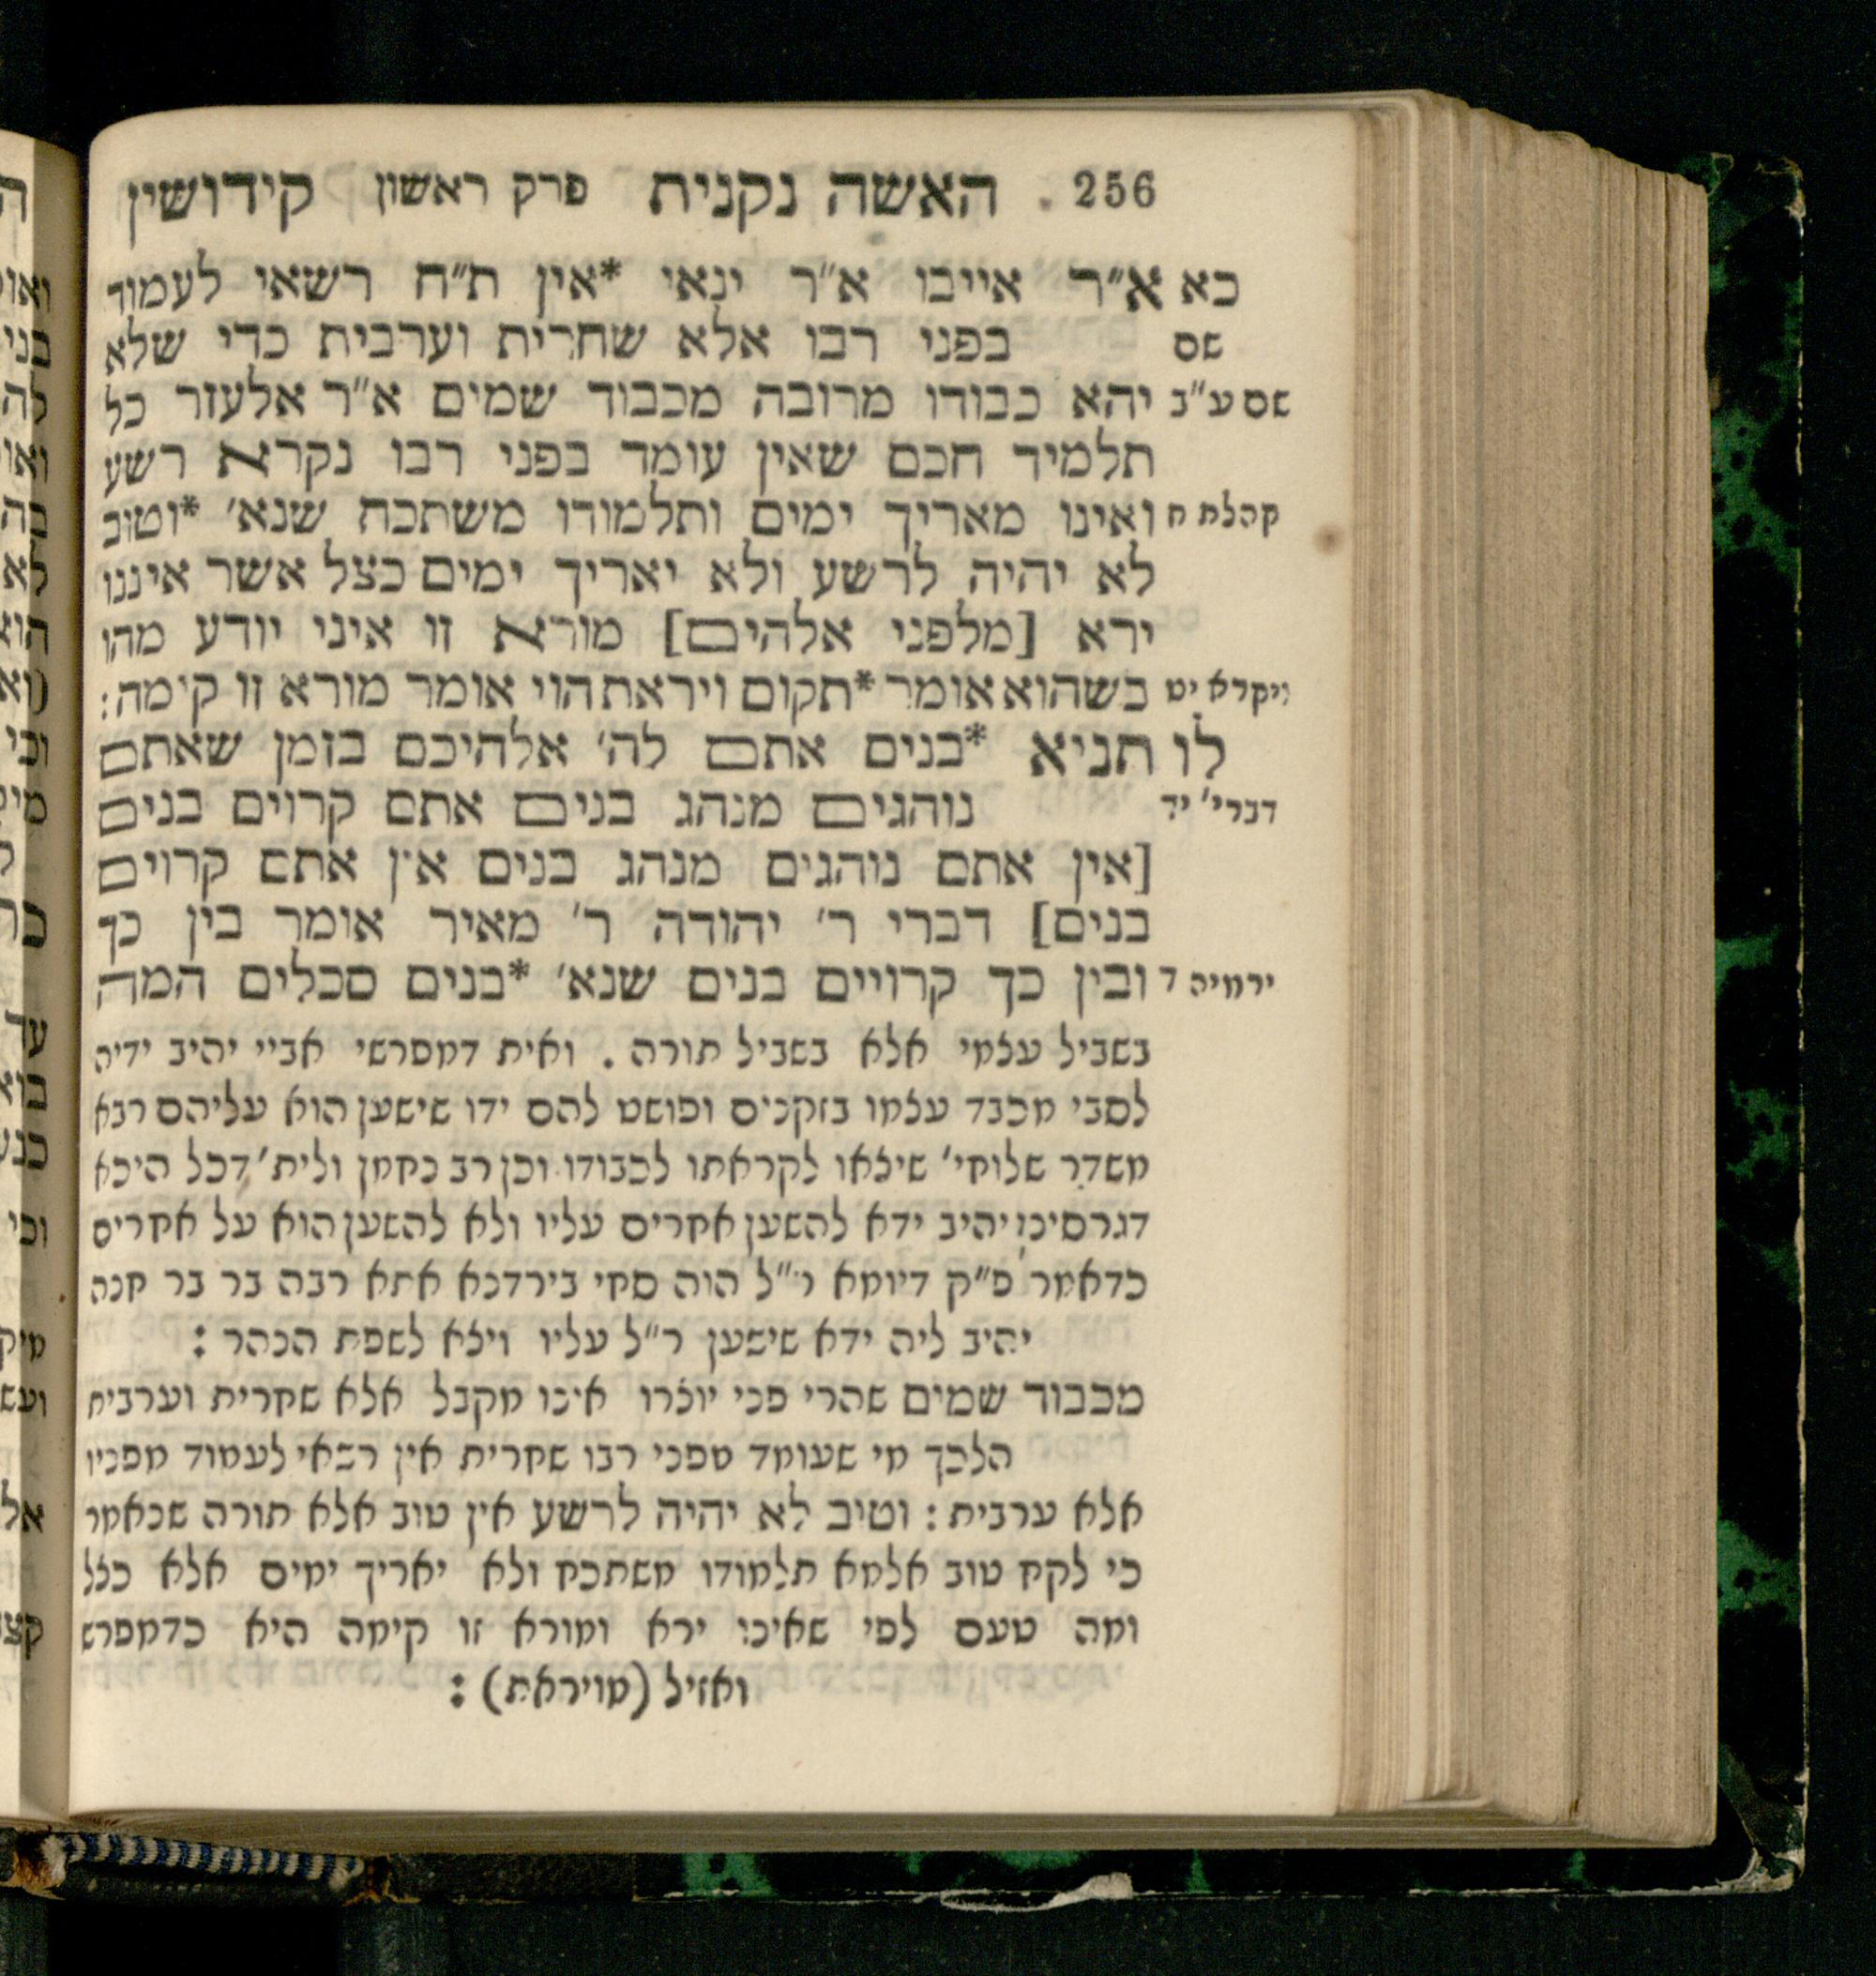 256 האשה נקנית פרק ראשון קידושין
כא א״ר אייבו א״ר ינאי *אין ת״ח רשאי לעמוד
שם בפני רבו אלא שחרית וערבית כדי שלא
שם ע״ב יהא כבודו מרובה מכבוד שמים א״ר אלעזר כל
תלמיד חכם שאין עומד בפני רבו נקרא רשע
קהלת ח ואינו מאריך ימים ותלמודו משתכח שנא׳ *וטוב
לא יהיה לרשע ולא יאריך ימים כצל אשר איננו
ירא [מלפני אלהים] מורא זו איני יודע מהו
ויקרא יט כשהוא אומר *תקום ויראת הוי אומר מורא זו קימה:
לו תניא *בנים אתם לה׳ אלהיכם בזמן שאתם
דברי׳ יד נוהגים מנהג בנים אתם קרוים בנים
[אין אתם נוהגים מנהג בנים אין אתם קרוים
בנים] דברי ר׳ יהודה ר׳ מאיר אומר בין כך
ירמיה ד ובין כך קרויים בנים שנא׳ *בנים סכלים המה
בשביל עצמי אלא בשביל תורה. ואית דמפרשי אביי יהיב ידיה
לסבי מכבד עצמו בזקנים ופושט להם ידו שישען הוא עליהם רבא
משדר שלוחי׳ שיצאו לקראתו לכבודו וכן רב נחמן ולית׳ דכל היכא
דגרסינן יהיב ידא להשען אחרים עליו ולא להשען הוא על אחרים
כדאמר פ״ק דיומא ר״ל הוה סחי בירדנא אתא רבה בר בר חנה
יהיב ליה ידא שישען ר״ל עליו ויצא לשפת הנהר:
מכבוד שמים שהרי פני יוצרו אינו מקבל אלא שחרית וערבית
הלכך מי שעומד מפני רבו שחרית אין רשאי לעמוד מפניו
אלא ערבית: וטוב לא יהיה לרשע אין טוב אלא תורה שנאמר
כי לקח טוב אלמא תלמודו משתכח ולא יאריך ימים אלא כצל
ומה טעם לפי שאינו ירא ומורא זו קימה היא כדמפרש
ואזיל (מויראת):